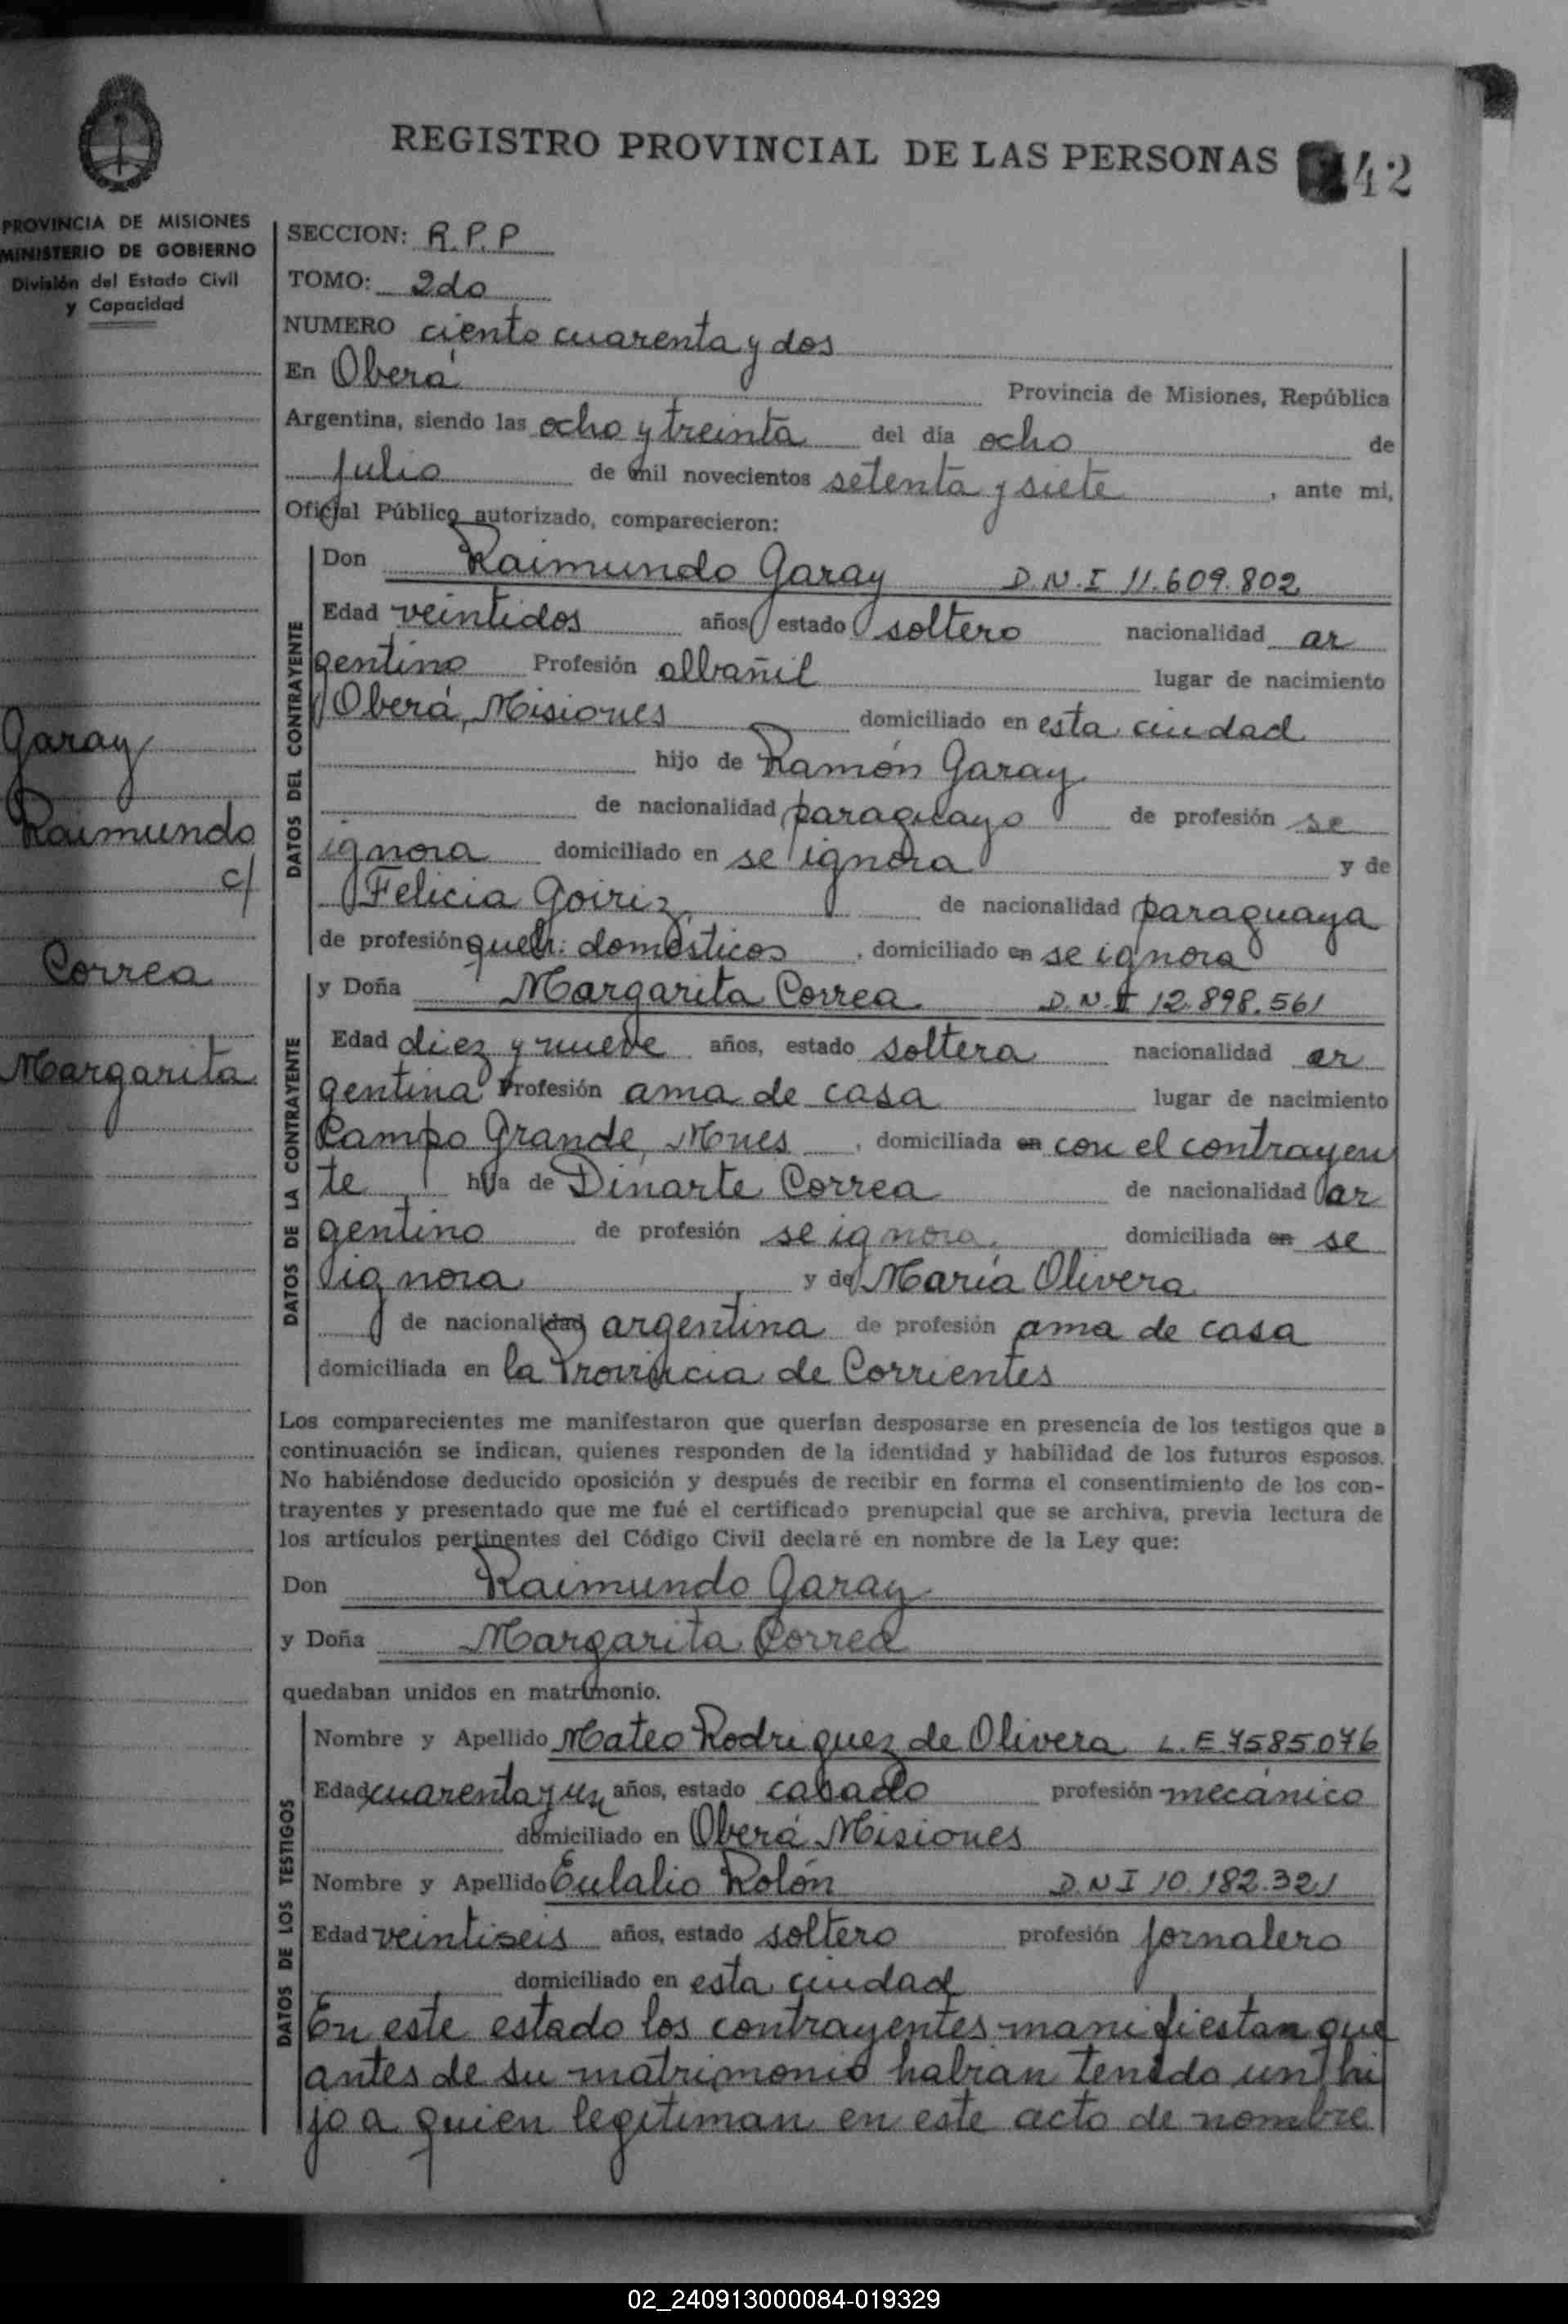 REGISTRO PROVINCIAL DE LAS PERSONAS 42
PROVINCIA DE MISIONES
MINISTERIO DE GOBIERNO
División del Estado Civil
y Capacidad
Garay
Raimundo
c/
Correa
Margarita
SECCION: R.P.P
TOMO: 2do
NUMERO ciento cuarenta y dos
En Oberá Provincia de Misiones, República
Argentina, siendo las ocho y treinta del día ocho de
julio de mil novecientos setenta y siete, ante mi,
Oficial Público autorizado, comparecieron:
DATOS DEL CONTRAYENTE
Don Raimundo Garay D.N.I 11.609.802
Edad veintidos años estado soltero nacionalidad ar
gentino Profesión albañil lugar de nacimiento
Oberá, Misiones domiciliado en esta ciudad
hijo de Ramón Garay
de nacionalidad paraguayo de profesión se
ignora domiciliado en se ignora y de
Felicia Goiriz de nacionalidad paraguaya
de profesión queh. domésticos, domiciliado en se ignora
DATOS DE LA CONTRAYENTE
y Doña Margarita Correa D.N.I 12.898.561
Edad diez y nueve años, estado soltera nacionalidad ar
gentina Profesión ama de casa lugar de nacimiento
Campo Grande, Mnes, domiciliada en con el contrayen
te hija de Dinarte Correa de nacionalidad ar
gentino de profesión se ignora domiciliada en se
ignora y de María Olivera
de nacionalidad argentina de profesión ama de casa
domiciliada en la Provincia de Corrientes
Los comparecientes me manifestaron que querían desposarse en presencia de los testigos que a
continuación se indican, quienes responden de la identidad y habilidad de los futuros esposos.
No habiéndose deducido oposición y después de recibir en forma el consentimiento de los con-
trayentes y presentado que me fué el certificado prenupcial que se archiva, previa lectura de
los artículos pertinentes del Código Civil declaré en nombre de la Ley que:
Don Raimundo Garay
y Doña Margarita Correa
quedaban unidos en matrimonio.
DATOS DE LOS TESTIGOS
Nombre y Apellido Mateo Rodriguez de Olivera L.E 7585.076
Edad cuarenta y un años, estado casado profesión mecánico
domiciliado en Oberá Misiones
Nombre y Apellido Eulalio Rolón D.N I 10.182.321
Edad veintiseis años, estado soltero profesión jornalero
domiciliado en esta ciudad
En este estado los contrayentes manifiestan que
antes de su matrimonio habian tenido un hi
jo a quien legitiman en este acto de nombre
02_240913000084-019329